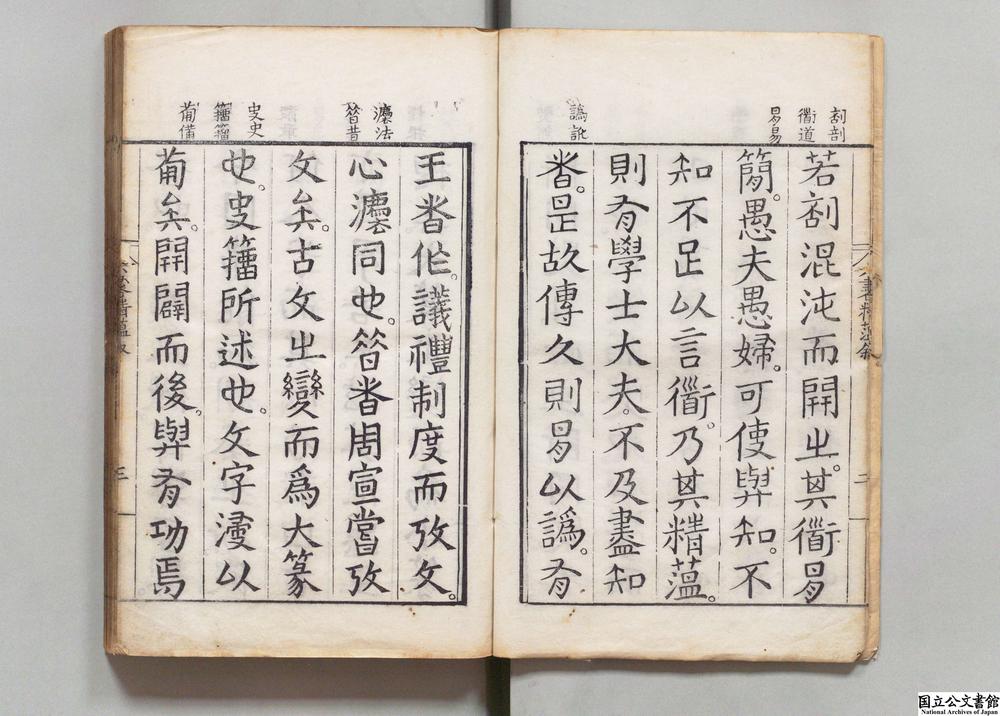 剖剖
衜道
易易
譌訛
若剖混沌而開㞢。其衜易
簡。愚夫愚婦。可使與知。不
知不足以言衜。乃其精薀。
則有學士大夫。不及盡知
者。是故傳久則易以譌。有
六書精薀敘
三
灋法
昔昔
史史
籀籀
葡備
王者作。議禮制度而攷文。
心灋同也。昔者周宣嘗攷
文矣。古文㞢變而爲大篆
也。史籀所述也。文字濅以
葡矣。開闢而後。與有功焉
六書精薀敘
三
国立公文書館
National Archives of Japan